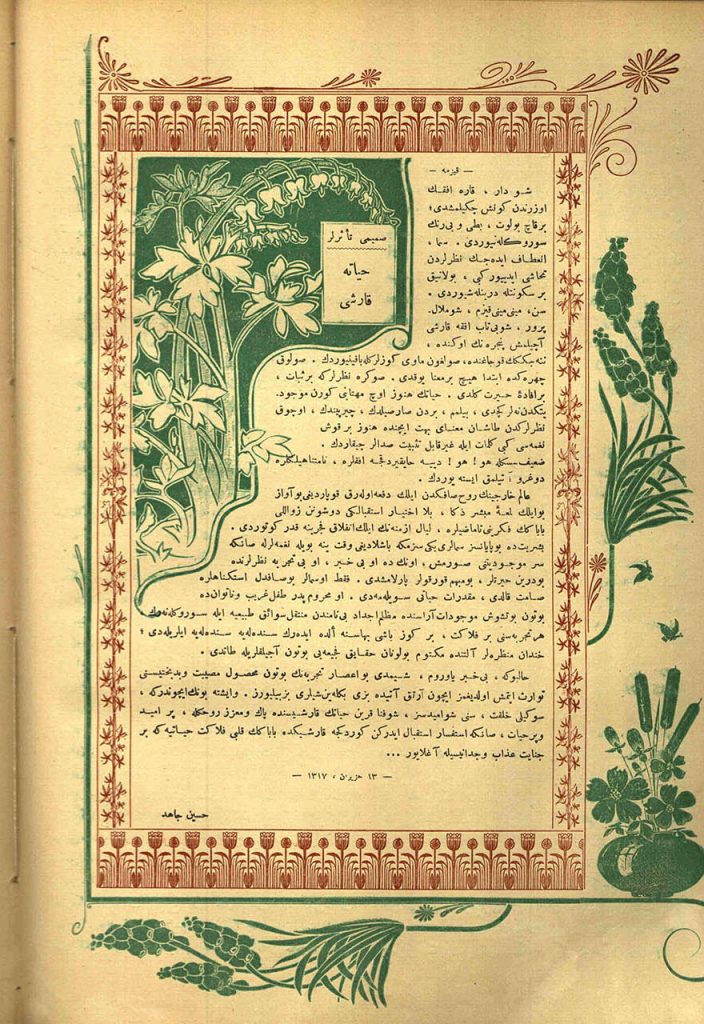 صميمى تأثرلر
حياته
قارشى
— قيزمه —
شو دار ، قاره افقك
اوزرندن كونش چكيلمشدى ؛
برقاچ بولوت ، بطى و بى‌رنك
سوروكله‌نيوردى . سما ،
انعطاف ايده‌جك نظرلردن
تحاشى ايدييور كبى ، بولانيق
بر سكونتله درينله‌شيوردى .
سن ، مينى‌مينى قيزم ، شوملال
پرور ، شوبى‌تاب افقه قارشى
آچيلمش پنجره‌نك اوكنده ،
ننه‌سككك قوجاغنده ، صولغون ماوى كوزلرله باقينيوردك . صولوق
چهره‌كده ابتدا هيچ برمعنا يوقدى . صوكره نظرلركه برثبات ،
برافادۀ حيرت كلدى . حياتك هنوز اوچ مهتابنى كورن موجود
يتكدن نه‌لر كچدى ، بيلمم ، بردن صارصيلدك ، چيرپندك ، اوجوق
نظرلركدن طاشان معناى بهت ايچنده هنوز بر قوش
نغمه‌سى كبى كلمات ايله غيرقابل تثبيت صدالر چيقاردك .
ضعيف سسكله هو ! هو ! دييه حايقيردقجه افقلره ، نامتناهيلكلره
دوغرو آتيلمق ايسته‌يوردك .
عالم خارجينك روح صافكدن ايلك دفعه‌اوله‌رق قوپاردينى بوآواز
بوايلك لمعۀ مبشر ذكا ، بلا اختيار استقبالكى دوشونن زواللى
باباكك فكرينى ناماضيلره ، ليال ازمنه‌نك ايلك انفلاق فجرينه قدر كوتوردى .
بشريت‌ده بوپايانسز سمالرى يكى سزمكه باشلادينى وقت ينه بويله نغمه‌لرله صانكه
سر موجوديتى صورمش ، اونك‌ده او بى خبر ، او بى تجربه نظرلرنده
بودرين حيرتلر ، بومبهم قورقولر پارلامشدى . فقط اوسمالر بوصافدل استكناهلره
صامت قالدى ، مقدرات حياتى سويله‌مه‌دى . او محروم پدر طفل غريب وناتوان‌ده
بوتون بوتشوش موجودات آراسنده مظلم اجداد بى‌نامندن منتقل سوائق طبيعيه ايله سوروكله‌نه‌رك
هرتجربه‌سنى بر فلاكت ، بر كوز ياشى بهاسنه ألده ايده‌رك سنده‌له‌يه سنده‌له‌يه ايلريله‌دى ؛
خندان منظره‌لر آلتنده مكتوم بولونان حقايق فجيعه‌يى بوتون آجيلقلريله طاندى .
حالبوكه ، بى‌خبر ياوروم ، شيمدى بواعصار تجربه‌نك بوتون محصول مصيبت وبدبختيسنى
توارث ايتمش اولديغمز ايچون آرتق آتيده بزى بكله‌ين‌شيلرى بزبيليورز . وايشته بونك‌ايچوندركه ،
سوكيلى خلقت ، سنى شواميدسز ، شوفنا قرين حياتك قارشيسنده پاك ومعزز روحكله ، پر اميد
وپرحيات ، صانكه استفسار استقبال ايدركن كوردكجه قارشيكده باباكك قلبى فلاكت حياتيه‌كه بر
جنايت عذاب وجدانيسيله آغلايور ...
— ١٣ حزيران ، ١٣١٧ —
حسين جاهد